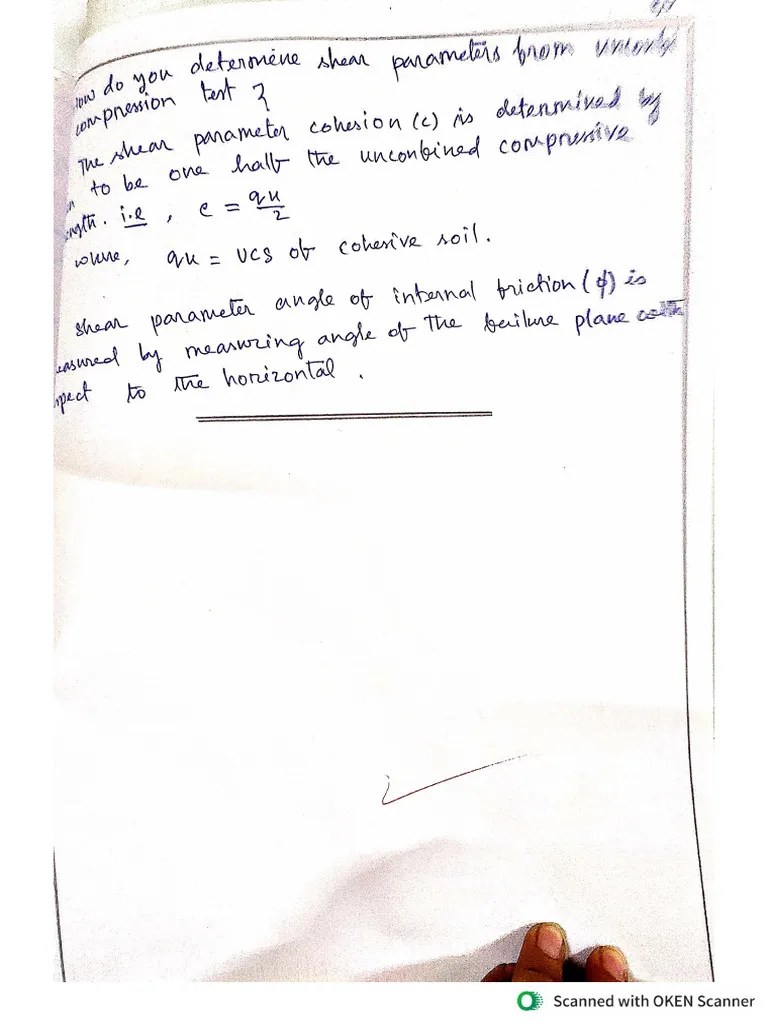 How do you determine shear parameters from
compression test ?
The shear parameter cohesion (c) is determined by
to be one half the unconfined compressive
i.e , c = qu/2
where, qu = UCS of cohesive soil.
shear parameter angle of internal friction (ϕ) is
measured by measuring angle of the failure plane with
to the horizontal .
Scanned with OKEN Scanner